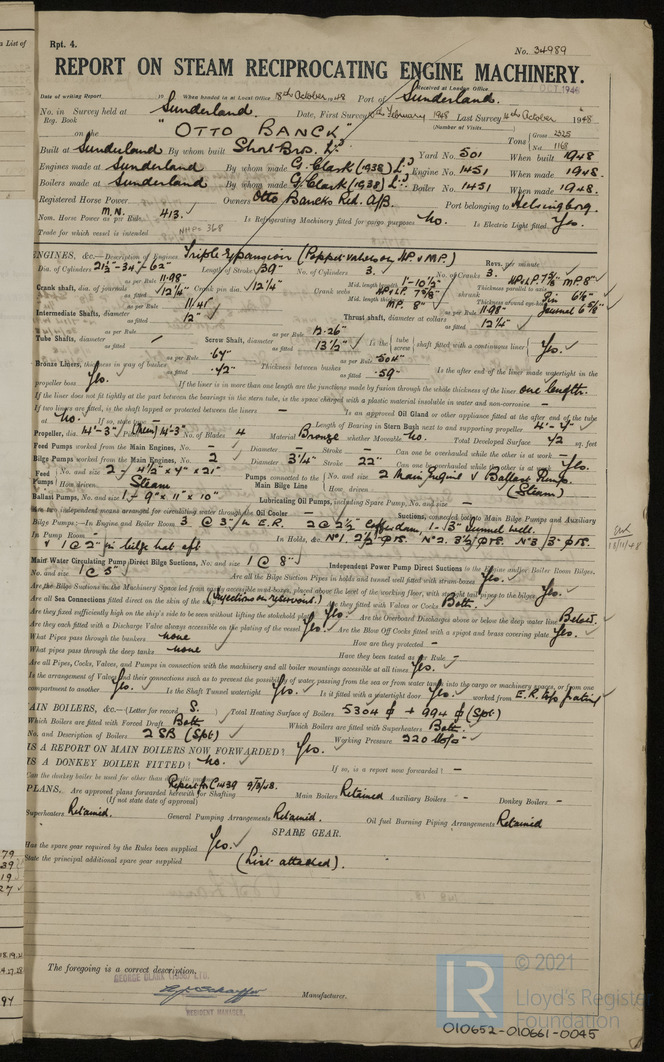 a List of
Rpt. 4.
No. 34989
REPORT ON STEAM RECIPROCATING ENGINE MACHINERY.
Received at London Office OCT 1948
Date of writing Report 19 When handed in at Local Office 18th October 1948 Port of Sunderland.
No. in Survey held at Sunderland. Date, First Survey February 1948 Last Survey October 1948
Reg. Book (Number of Visits
on the "OTTO BANCK" Tons Gross 2325 Net 1168
Built at Sunderland By whom built Short Bros. Ld. Yard No. 501 When built 1948
Engines made at Sunderland By whom made G. Clark (1938) Ld. Engine No. 1451 When made 1948.
Boilers made at Sunderland By whom made G. Clark (1938) Ld. Boiler No. 1451 When made 1948.
Registered Horse Power Owners Otto Bancks Red. A/B. Port belonging to Helsingborg.
Nom. Horse Power as per Rule M.N. 413. Is Refrigerating Machinery fitted for cargo purposes No. Is Electric Light fitted Yes.
Trade for which vessel is intended NHP= 368
ENGINES, &c.—Description of Engines Triple Expansion (Poppet valves on HP & M.P.) Revs. per minute
Dia. of Cylinders 21½-34-62" Length of Stroke 39" No. of Cylinders 3. No. of Cranks 3.
Crank shaft, dia. of journals as per Rule 11.98" as fitted 12¼" Crank pin dia. 12¼" Crank webs Mid. length breadth 1'-10½" Mid. length thickness HP&LP 7⅝" M.P. 8" shrunk Thickness parallel to axis HP&LP. 7⅝" M.P. 8" Thickness around eye-hole Pin 6⅛" Journal 6⅝"
Intermediate Shafts, diameter as per Rule 11.41 as fitted 12" Thrust shaft, diameter at collars as per Rule 11.98 as fitted 12¼"
Tube Shafts, diameter as per Rule as fitted Screw Shaft, diameter as per Rule 13.26" as fitted 13½" Is the tube screw shaft fitted with a continuous liner Yes.
Bronze Liners, thickness in way of bushes as per Rule .67" as fitted .72" Thickness between bushes as per Rule .504" as fitted .59" Is the after end of the liner made watertight in the
propeller boss Yes. If the liner is in more than one length are the junctions made by fusion through the whole thickness of the liner one length.
If the liner does not fit tightly at the part between the bearings in the stern tube, is the space charged with a plastic material insoluble in water and non-corrosive -
If two liners are fitted, is the shaft lapped or protected between the liners - Is an approved Oil Gland or other appliance fitted at the after end of the tube
shaft No. If so, state type Length of Bearing in Stern Bush next to and supporting propeller 4'-7"
Propeller, dia. 14'-3" Pitch 14'-3" No. of Blades 4 Material Bronze whether Moveable No. Total Developed Surface 72 sq. feet
Feed Pumps worked from the Main Engines, No. - Diameter - Stroke - Can one be overhauled while the other is at work -
Bilge Pumps worked from the Main Engines, No. 2 Diameter 3¼" Stroke 22" Can one be overhauled while the other is at work Yes.
Feed Pumps No. and size 2 - 9½" x 7" x 21" How driven Steam Pumps connected to the Main Bilge Line No. and size 2 Main Engine & Ballast Pump. How driven (Steam)
Ballast Pumps, No. and size 1- 9" x 11" x 10" Lubricating Oil Pumps, including Spare Pump, No. and size -
Are two independent means arranged for circulating water through the Oil Cooler - Suctions, connected to both Main Bilge Pumps and Auxiliary
Bilge Pumps;—In Engine and Boiler Room 3 @ 3" in E.R. 2 @ 2½" Cofferdam. 1-3" Tunnel well.
In Pump Room - In Holds, &c. No 1. 2/2½" P&S. No 2. 3½" P&S. No 3/3" P&S.
& 1 @ 2" in bilge hat aft
Main Water Circulating Pump Direct Bilge Suctions, No. and size 1 @ 8" Independent Power Pump Direct Suctions to the Engine and/or Boiler Room Bilges,
No. and size 1 @ 5" Are all the Bilge Suction Pipes in holds and tunnel well fitted with strum-boxes Yes.
Are the Bilge Suctions in the Machinery Space led from easily accessible mud-boxes, placed above the level of the working floor, with straight tail pipes to the bilges Yes.
Are all Sea Connections fitted direct on the skin of the ship (Injections on reservoirs). Are they fitted with Valves or Cocks Both.
Are they fixed sufficiently high on the ship's side to be seen without lifting the stokehold plates Yes. Are the Overboard Discharges above or below the deep water line Below.
Are they each fitted with a Discharge Valve always accessible on the plating of the vessel Yes. Are the Blow Off Cocks fitted with a spigot and brass covering plate Yes.
What Pipes pass through the bunkers none How are they protected -
What pipes pass through the deep tanks none Have they been tested as per Rule -
Are all Pipes, Cocks, Valves, and Pumps in connection with the machinery and all boiler mountings accessible at all times Yes.
Is the arrangement of Valves and their connections such as to prevent the possibility of water passing from the sea or from water tanks into the cargo or machinery spaces, or from one
compartment to another Yes. Is the Shaft Tunnel watertight Yes. Is it fitted with a watertight door Yes. worked from E.R. top grating
MAIN BOILERS, &c.—(Letter for record S. Total Heating Surface of Boilers 5304 ϕ + 994 ϕ (Spt)
Which Boilers are fitted with Forced Draft Both Which Boilers are fitted with Superheaters Both.
No. and Description of Boilers 2 SB (Spt) Working Pressure 220 lb/□"
IS A REPORT ON MAIN BOILERS NOW FORWARDED? Yes.
IS A DONKEY BOILER FITTED? No. If so, is a report now forwarded? -
Can the donkey boiler be used for other than domestic purposes
PLANS. Are approved plans forwarded herewith for Shafting Main Boilers Retained Auxiliary Boilers - Donkey Boilers -
(If not state date of approval)
Superheaters Retained. General Pumping Arrangements Retained. Oil fuel Burning Piping Arrangements Retained
SPARE GEAR.
Has the spare gear required by the Rules been supplied Yes.
State the principal additional spare gear supplied (List attached).
The foregoing is a correct description,
GEORGE CLARK (1938) LTD.
RESIDENT MANAGER. Manufacturer.
© 2021
LR
Lloyd's Register
Foundation
010652-010661-0045